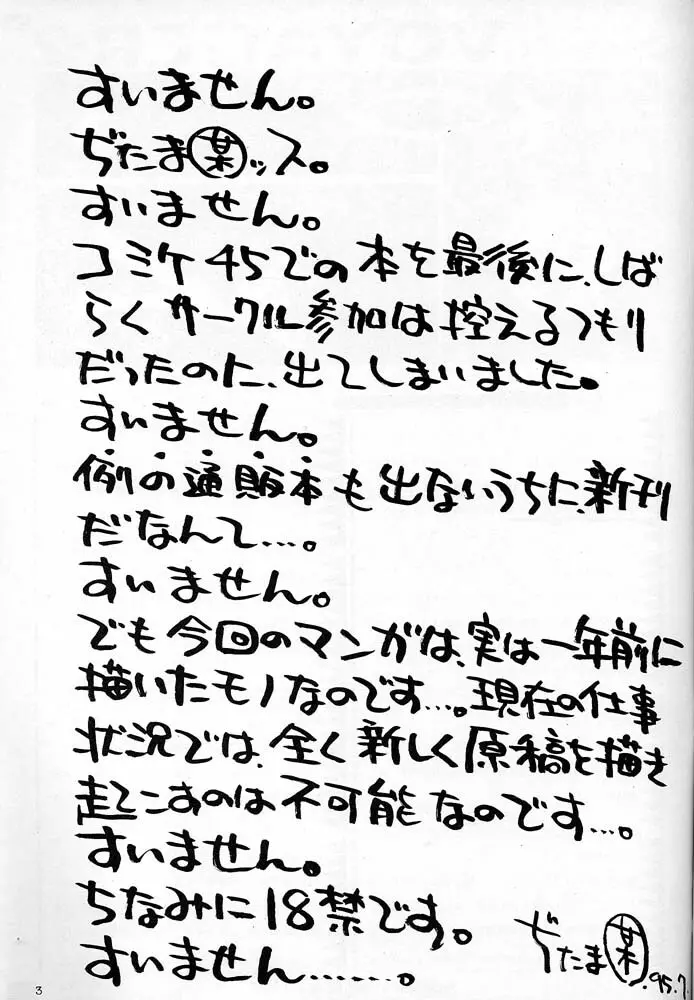 すいません。
ぢたま㋱ッス。
すいません。
コミケ45での本を最後に、しば
らくサークル参加は控えるつもり
だったのに、出てしまいました。
すいません。
例の通販本も出ないうちに、新刊
だなんて…。
すいません。
でも今回のマンガは、実は一年前に
描いたモノなのです…。現在の仕事
状況では、全く新しく原稿を描き
起こすのは不可能なのです…。
すいません。
ちなみに18禁です。
すいません……。
ぢたま某 '95.7.
3